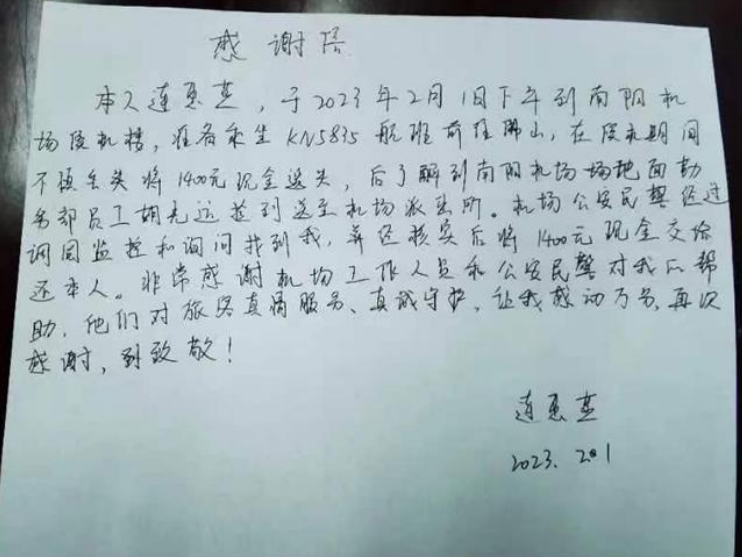 感谢语
本人连惠燕,于2023年2月1日下午到南阳机
场候机楼,准备乘坐KN5835航班前往佛山,在候机期间
不慎丢失将1400元现金遗失,后了解到南阳机场场地面勤
务部员工胡先运捡到送至机场派出所。机场公安民警经过
调回监控和询问找到我,并经核实后将1400元现金交给
还本人。非常感谢机场工作人员和公安民警对我的帮
助,他们对旅客真情服务、真诚守护,让我感动万分,再次
感谢,到致敬!
连惠燕
2023.2.1